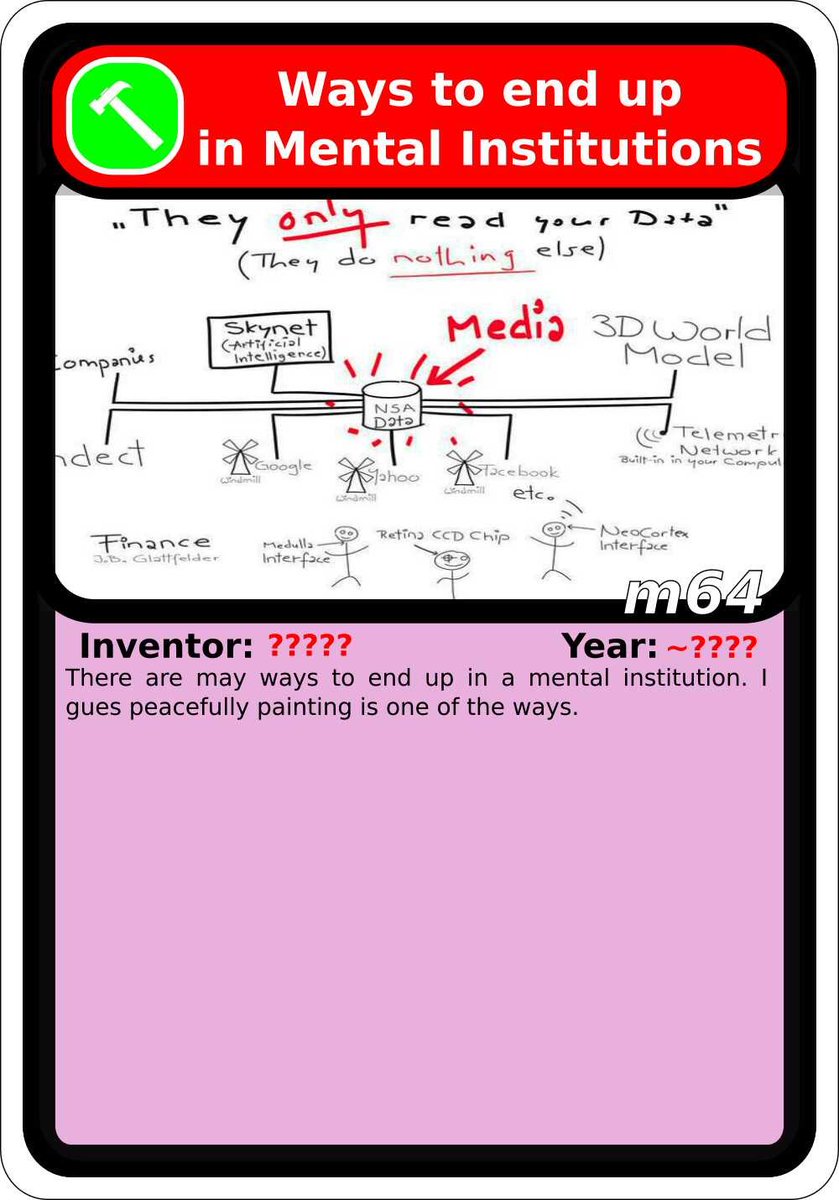 Ways to end up
in Mental Institutions
„They only read your Data"
(They do nothing else)
Media
3D World
Model
Skynet
(-Artificial
Intelligence)
Companies
NSA
Data
ndect
Google
windmill
Yahoo
windmill
Facebook
windmill
etc.
Telemetr
Network
Built-in in your Comput
Finance
J.B. Glattfelder
Medulla
Interface
Retina CCD Chip
NeoCortex
Interface
m64
Inventor: ?????
Year: ~????
There are may ways to end up in a mental institution. I
gues peacefully painting is one of the ways.